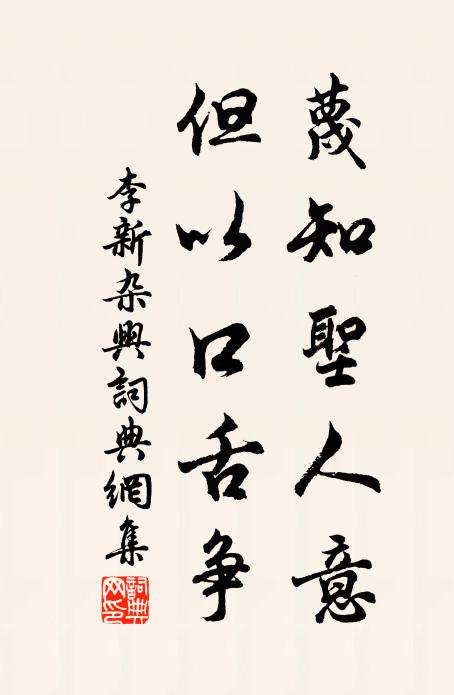 蔑知聖人意
但以口舌争
李新杂興詞典網集
詞典網印